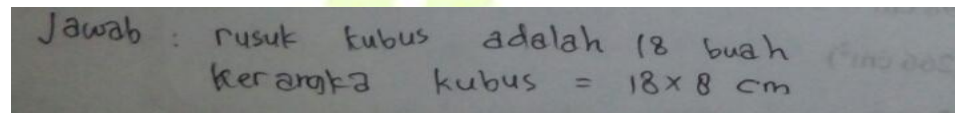 Jawab : rusuk kubus adalah 18 buah
kerangka kubus = 18 x 8 cm